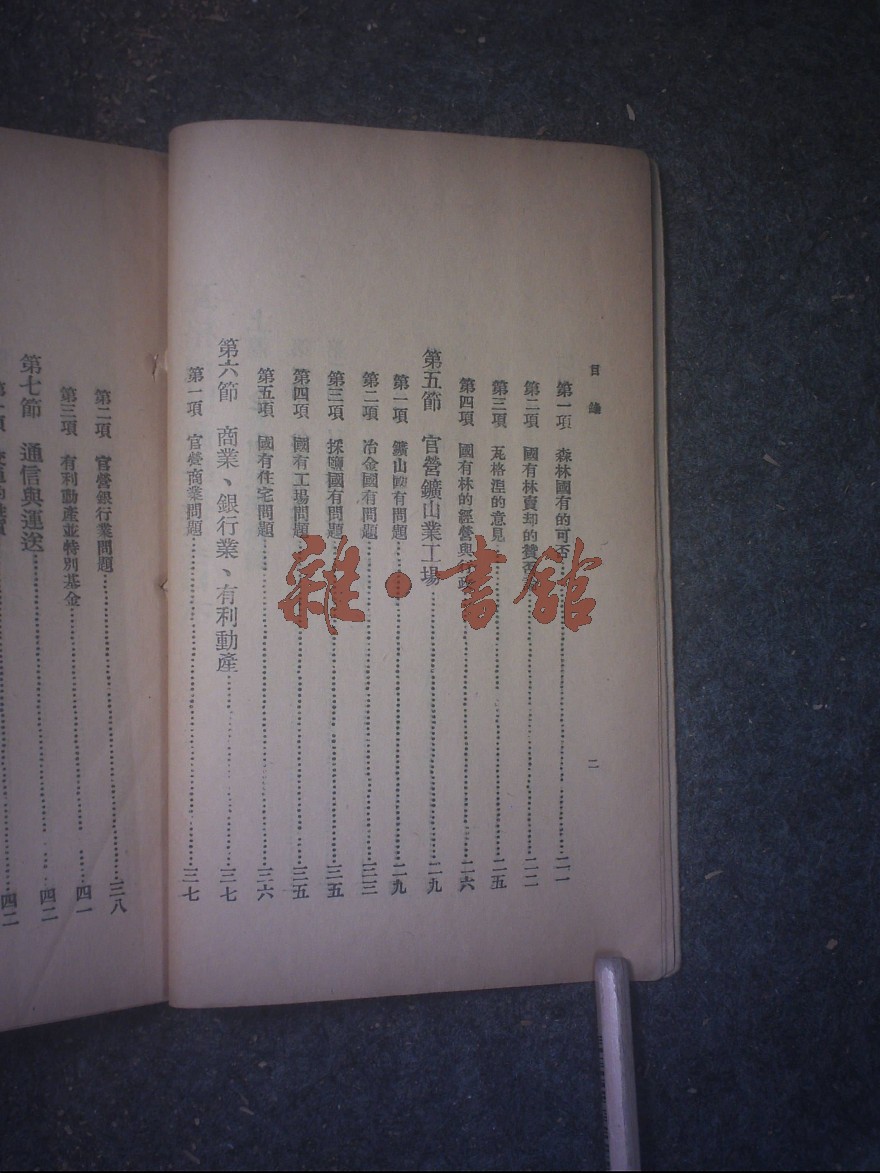 目錄
二
第一項 森林國有的可否……二一
第二項 國有林賣却的贊否……二二
第三項 瓦格湼的意見……二五
第四項 國有林的經營與……二六
第五節 官營鑛山業工場……二九
第一項 鑛山國有問題……二九
第二項 冶金國有問題……三三
第三項 採鹽國有問題……三五
第四項 國有工場問題……三五
第五項 國有住宅問題……三六
第六節 商業、銀行業、有利動產……三七
第一項 官營商業問題……三七
第二項 官營銀行業問題……三八
第三項 有利動產並特別基金……四一
第七節 通信與運送……四二
第一項……四二
雜·書館